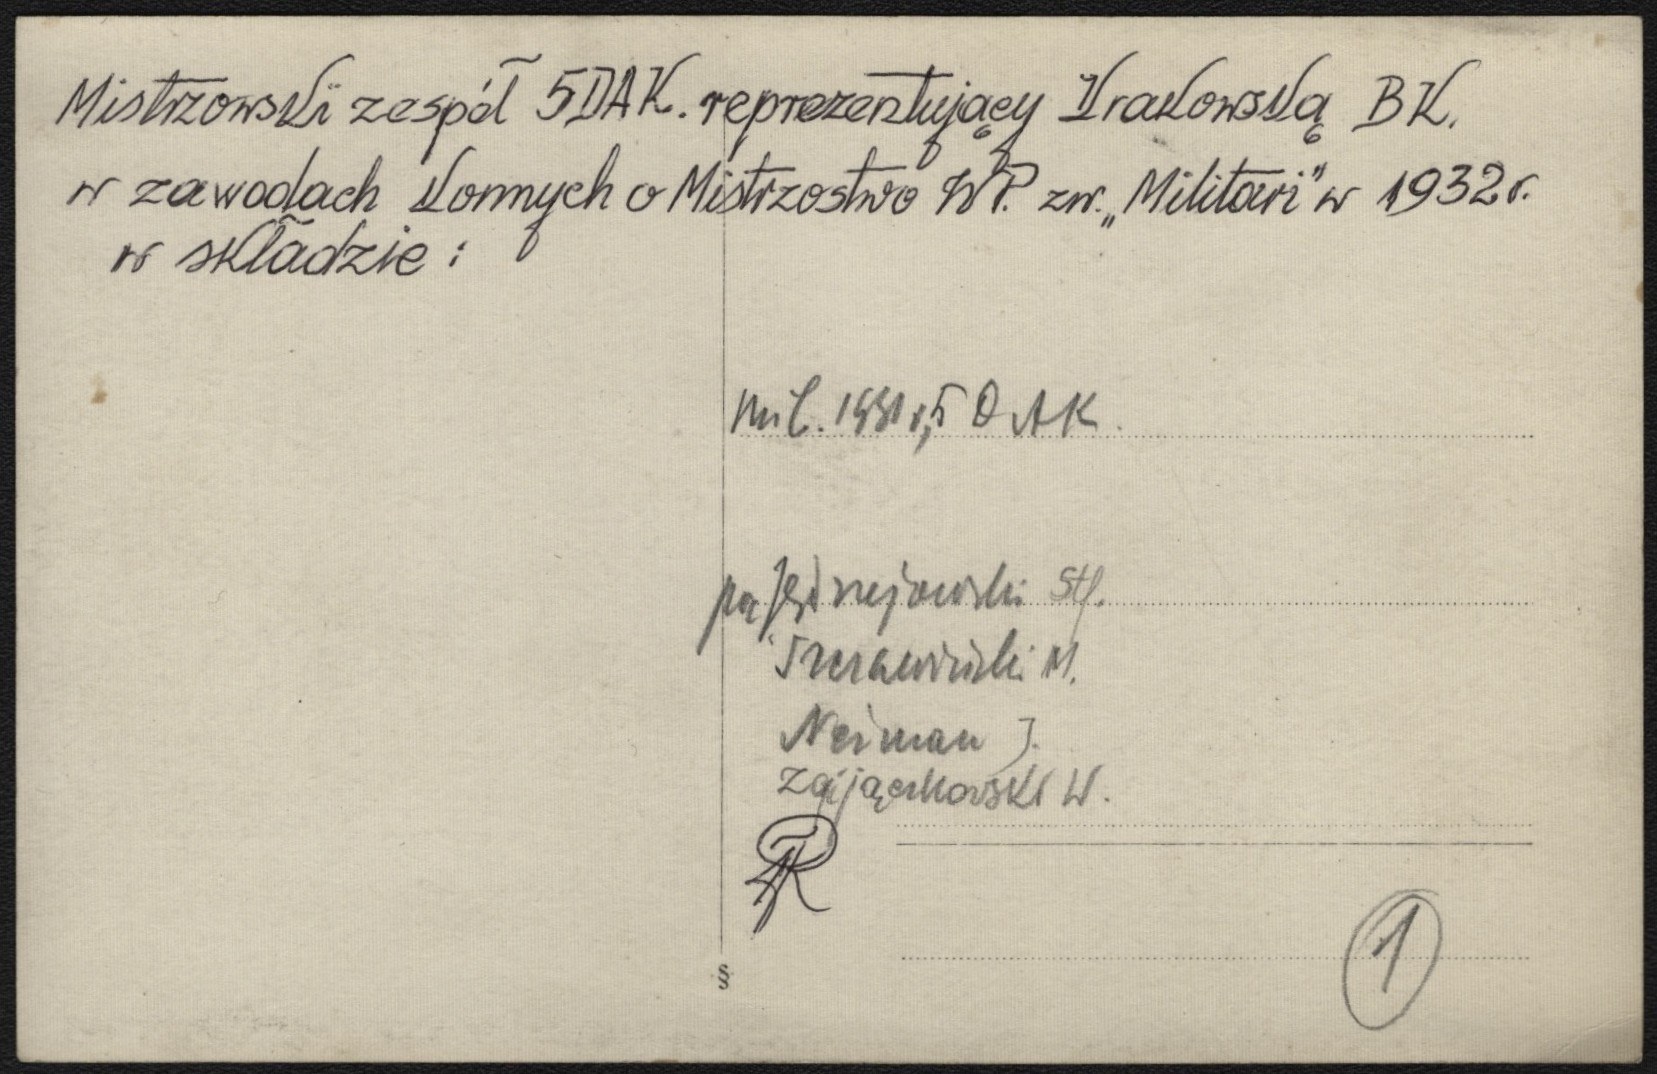 Mistrzowski zespół 5DAK. reprezentujący Krakowską BK.
w zawodach konnych o Mistrzostwo WP. zw. „Militari" w 1932 r.
w składzie:
Mil. 1931 r, 5 DAK.
Jędrzejowski Stf.
M.
Neiman J.
Zajączkowski W.
§
1